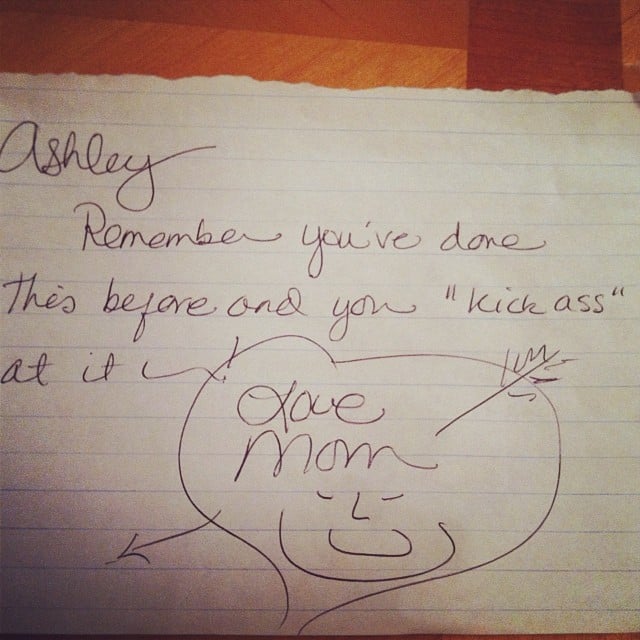 Ashley
Remember you've done
This before and you "kick ass"
at it !
Love
Mom